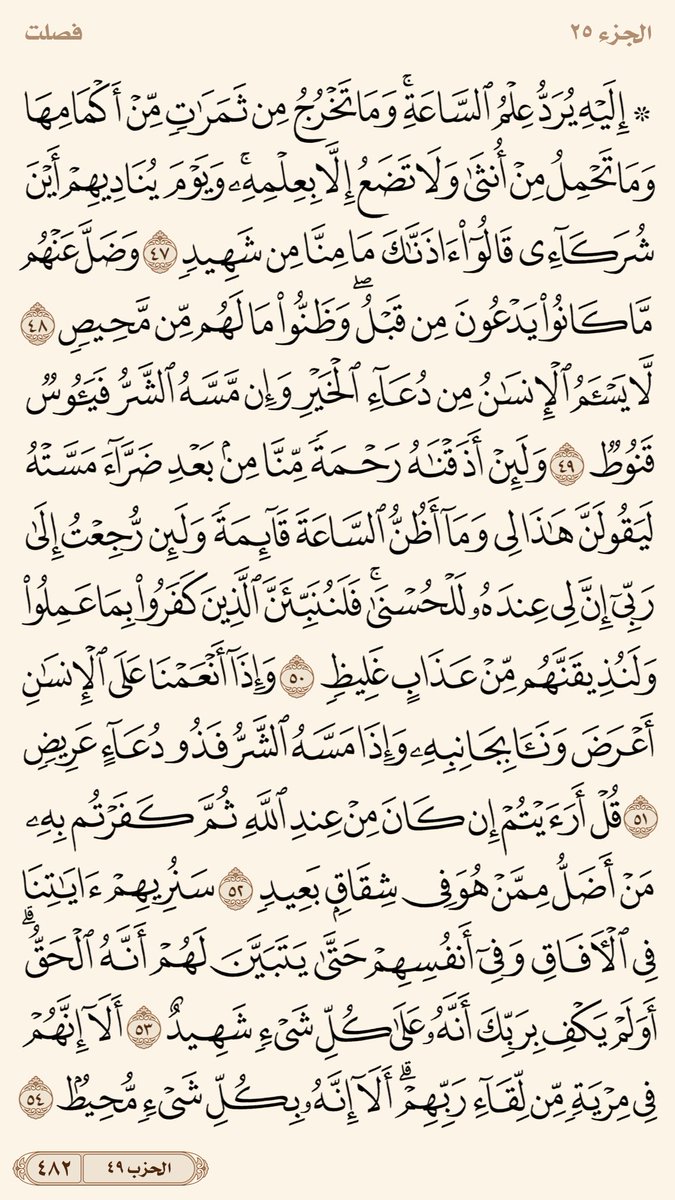 الجزء ٢٥ فصلت
۞ إِلَيْهِ يُرَدُّ عِلْمُ ٱلسَّاعَةِۚ وَمَا تَخْرُجُ مِن ثَمَرَٰتٖ مِّنْ أَكْمَامِهَا
وَمَا تَحْمِلُ مِنْ أُنثَىٰ وَلَا تَضَعُ إِلَّا بِعِلْمِهِۦۚ وَيَوْمَ يُنَادِيهِمْ أَيْنَ
شُرَكَآءِى قَالُوٓاْ ءَاذَنَّٰكَ مَا مِنَّا مِن شَهِيدٖ ٤٧ وَضَلَّ عَنْهُم
مَّا كَانُواْ يَدْعُونَ مِن قَبْلُۖ وَظَنُّواْ مَا لَهُم مِّن مَّحِيصٖ ٤٨
لَّا يَسْـَٔمُ ٱلْإِنسَٰنُ مِن دُعَآءِ ٱلْخَيْرِ وَإِن مَّسَّهُ ٱلشَّرُّ فَيَـُٔوسٞ
قَنُوطٞ ٤٩ وَلَئِنْ أَذَقْنَٰهُ رَحْمَةٗ مِّنَّا مِنۢ بَعْدِ ضَرَّآءَ مَسَّتْهُ
لَيَقُولَنَّ هَٰذَا لِى وَمَآ أَظُنُّ ٱلسَّاعَةَ قَآئِمَةٗ وَلَئِن رُّجِعْتُ إِلَىٰ
رَبِّىٓ إِنَّ لِى عِندَهُۥ لَلْحُسْنَىٰۚ فَلَنُنَبِّئَنَّ ٱلَّذِينَ كَفَرُواْ بِمَا عَمِلُواْ
وَلَنُذِيقَنَّهُم مِّنْ عَذَابٍ غَلِيظٖ ٥٠ وَإِذَآ أَنْعَمْنَا عَلَى ٱلْإِنسَٰنِ
أَعْرَضَ وَنَـَٔا بِجَانِبِهِۦ وَإِذَا مَسَّهُ ٱلشَّرُّ فَذُو دُعَآءٍ عَرِيضٖ
٥١ قُلْ أَرَءَيْتُمْ إِن كَانَ مِنْ عِندِ ٱللَّهِ ثُمَّ كَفَرْتُم بِهِۦ
مَنْ أَضَلُّ مِمَّنْ هُوَ فِى شِقَاقِۭ بَعِيدٖ ٥٢ سَنُرِيهِمْ ءَايَٰتِنَا
فِى ٱلْأٓفَاقِ وَفِىٓ أَنفُسِهِمْ حَتَّىٰ يَتَبَيَّنَ لَهُمْ أَنَّهُ ٱلْحَقُّۗ
أَوَلَمْ يَكْفِ بِرَبِّكَ أَنَّهُۥ عَلَىٰ كُلِّ شَىْءٖ شَهِيدٌ ٥٣ أَلَآ إِنَّهُمْ
فِى مِرْيَةٖ مِّن لِّقَآءِ رَبِّهِمْۗ أَلَآ إِنَّهُۥ بِكُلِّ شَىْءٖ مُّحِيطُۢ ٥٤
الحزب ٤٩ ٤٨٢